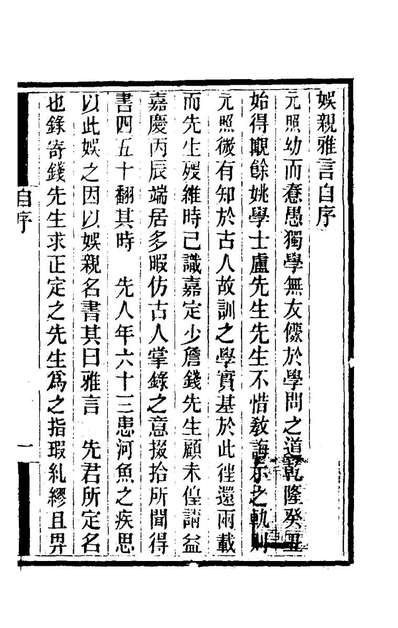 娛親雅言自序
元照幼而惷愚獨學無友儚於學問之道乾隆癸丑
始得覯餘姚學士盧先生先生不惜敎誨示之軌則
元照後有知於古人故訓之學實基於此徃還兩載
而先生歿維時已識嘉定少詹錢先生顧未偟請益
嘉慶丙辰端居多暇仿古人掌錄之意掇拾所聞得
書四五十翻其時 先人年六十三患河魚之疾思
以此娛之因以娛親名書其曰雅言 先君所定名
也錄寄錢先生求正定之先生爲之指瑕糾繆且畀
自序
一